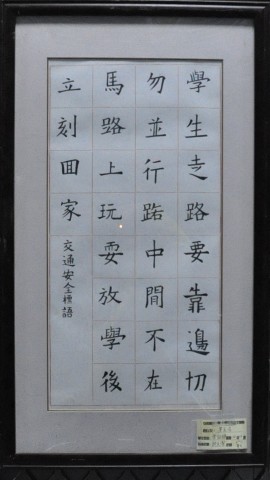 學生走路要靠邊切
勿並行踞中間不在
馬路上玩耍放學後
立刻回家
交通安全標語